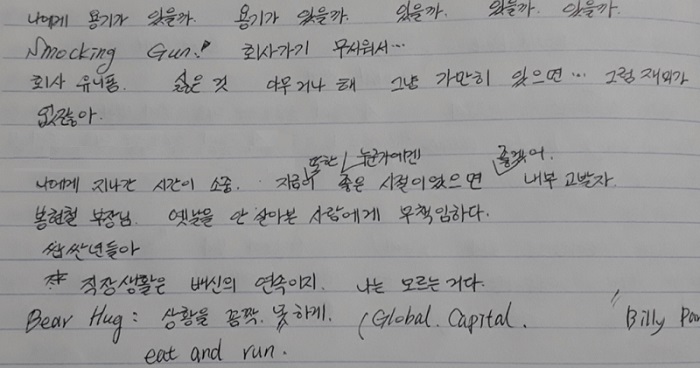 나에게 용기가 있을까. 용기가 있을까. 있을까. 있을까. 있을까.
Smocking Gun! 회사가기 무서워서…
회사 유니폼. 싫은 것 아무거나 해 그냥 가만히 있으면… 그럼 재미가
없잖아.
또한 누군가에겐 좋겠어.
나에게 지나간 시간이 소중. 지금이 좋은 시절이었으면 내부 고발자.
봉현철 부장님. 옛날을 안 살아본 사람에게 무책임하다.
쌉싼년들아
직장생활은 배신의 연속이지. 나는 모르는 거다.
Bear Hug: 상황을 꼼짝 못하게. (Global. Capital. "Billy
eat and run.